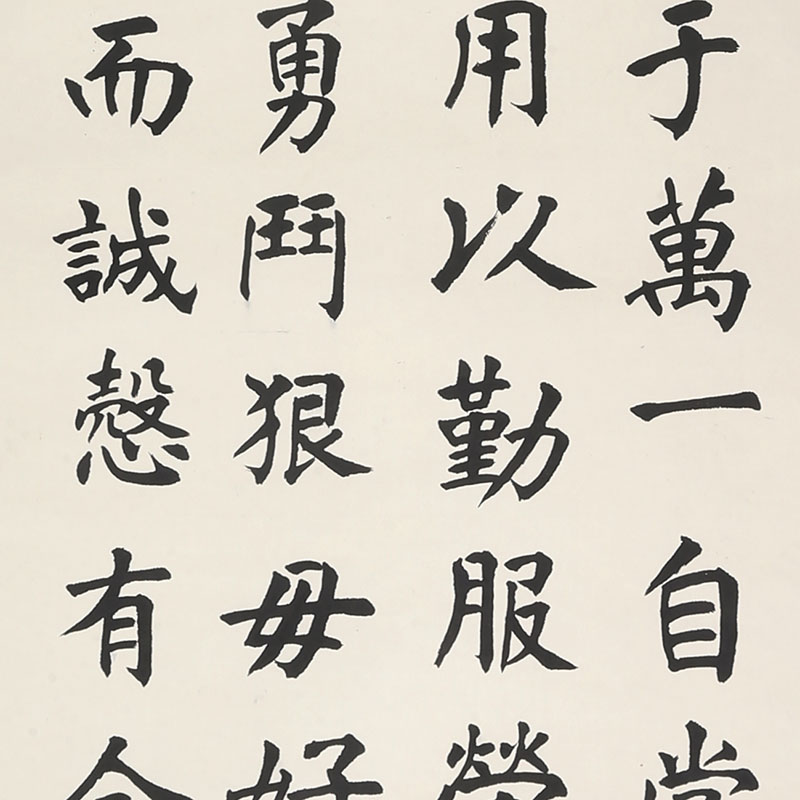 于萬一自
用以勤服
勇鬥狠毋好
而誠慤有